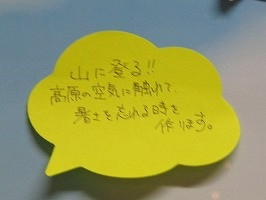 山に登る!!
高原の空気に触れて、
暑さを忘れる時を
作ります。